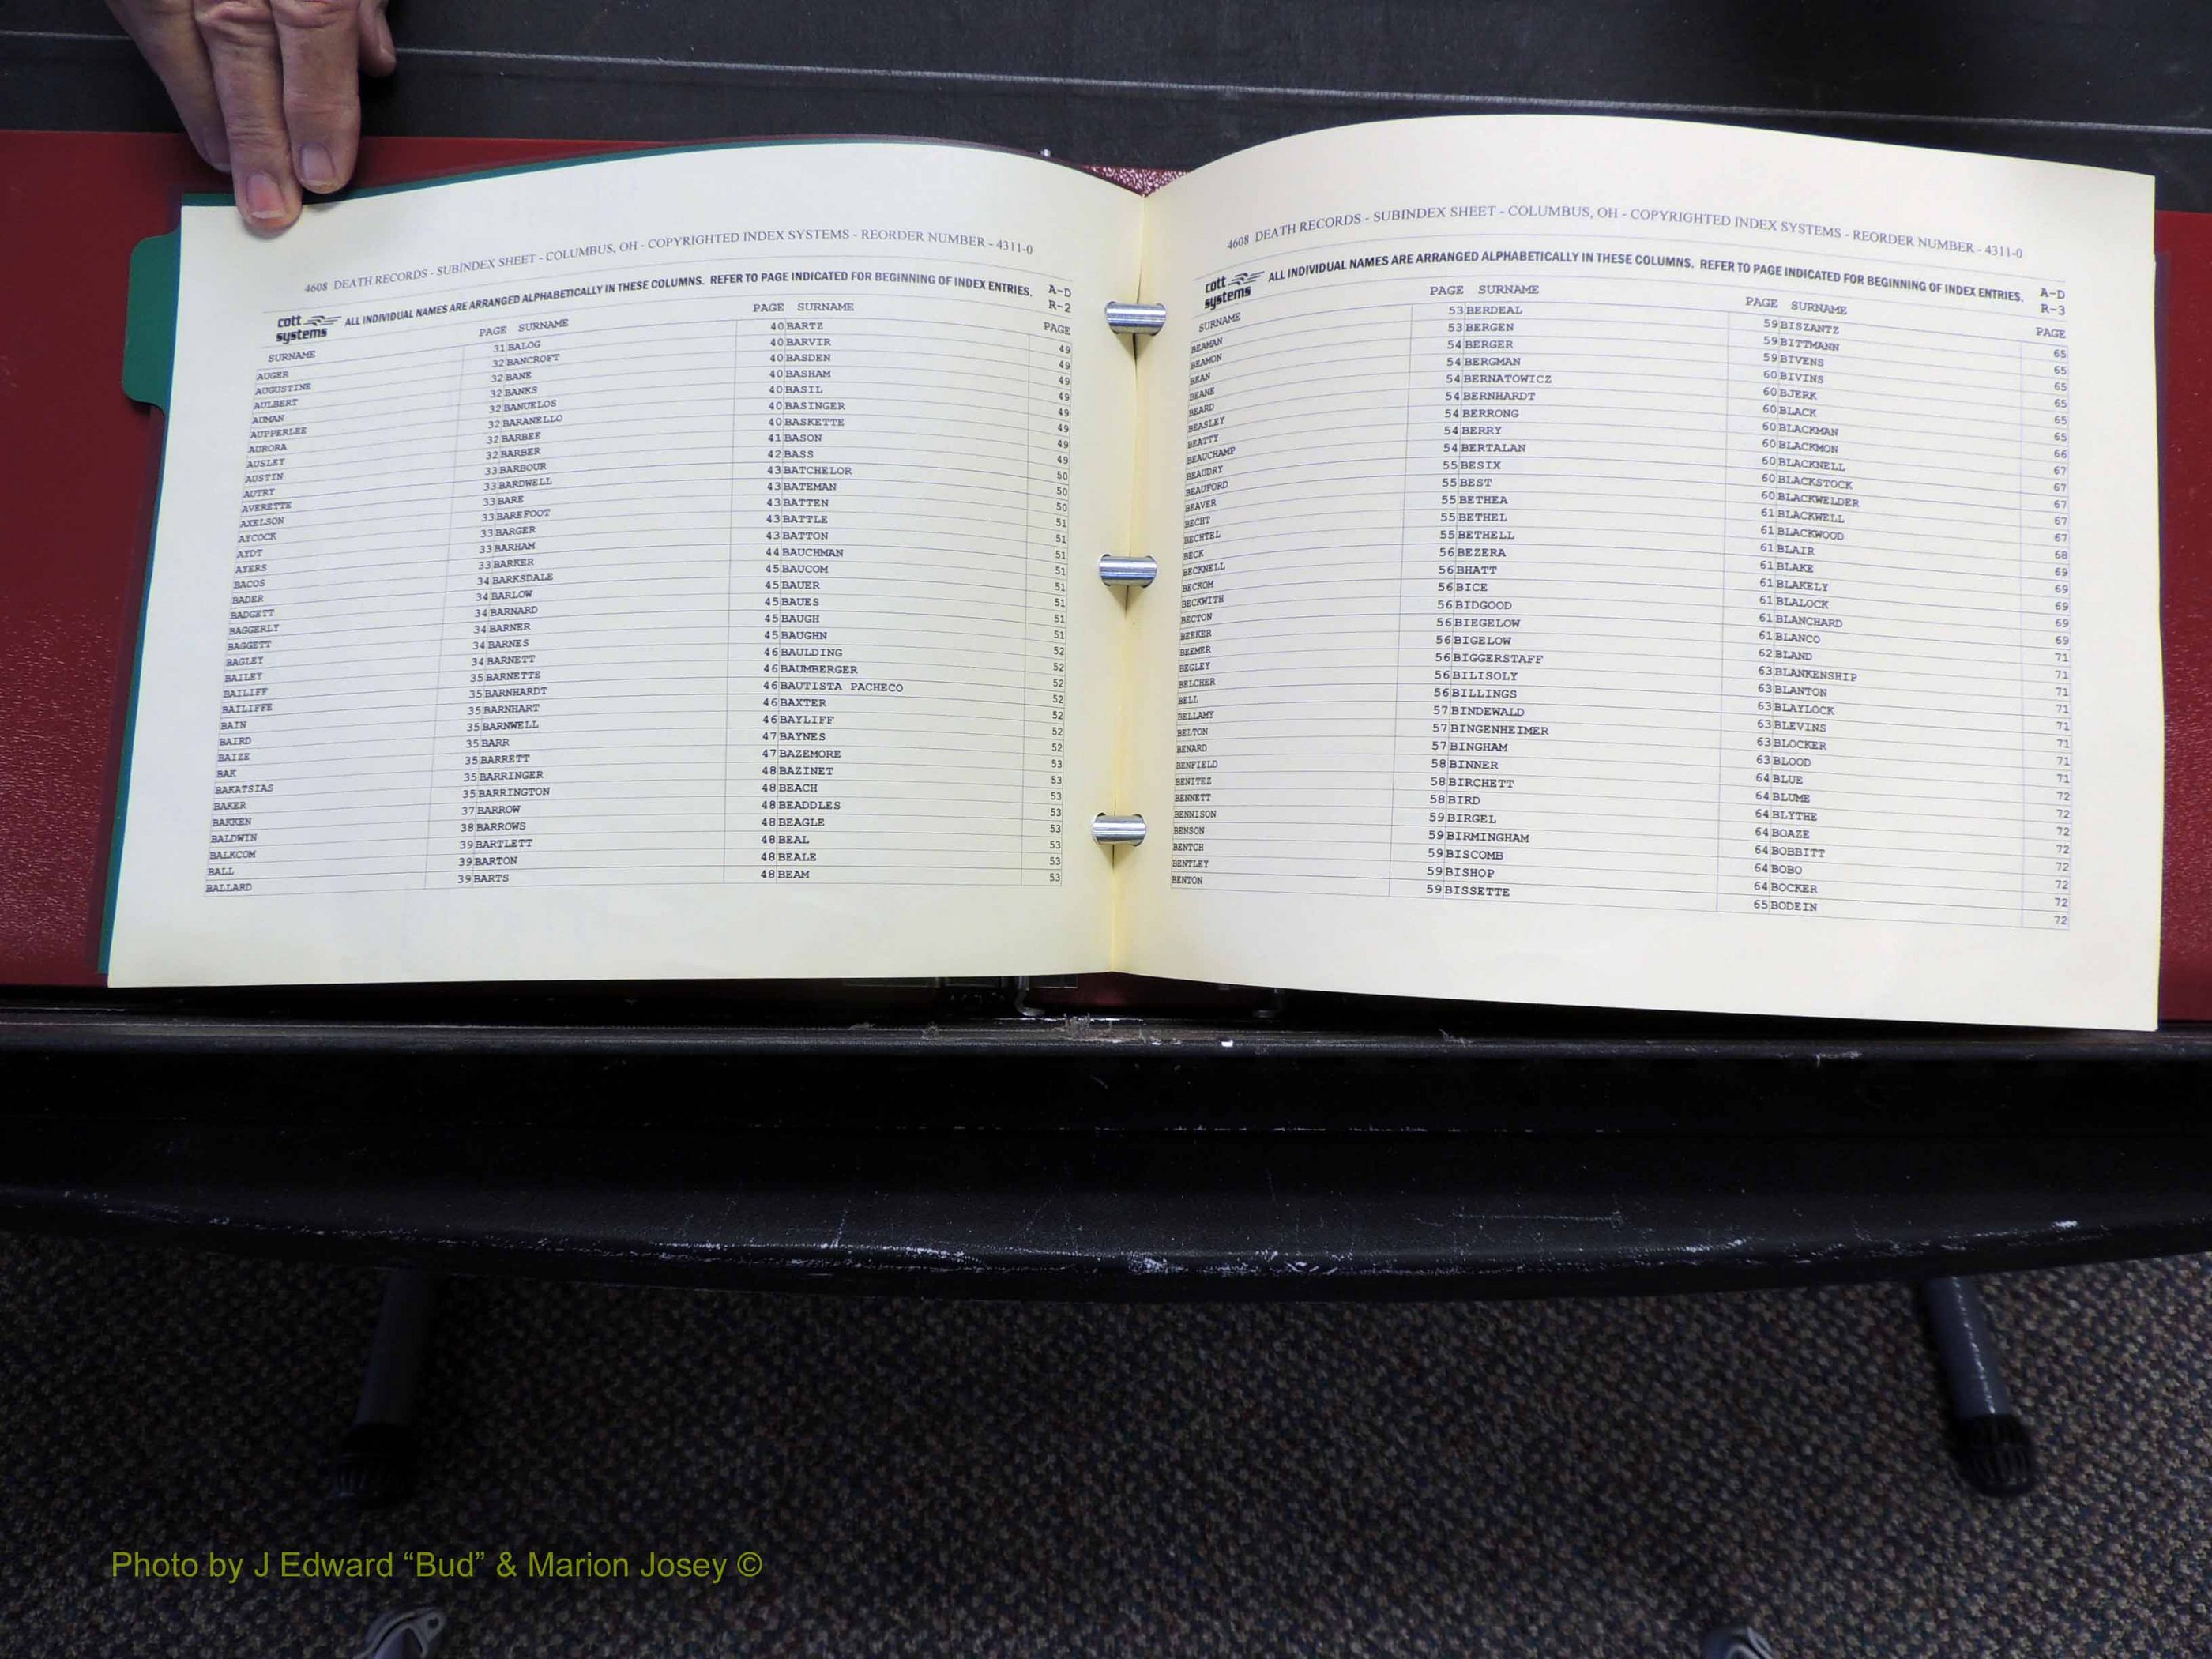 4608 DEATH RECORDS - SUBINDEX SHEET - COLUMBUS, OH - COPYRIGHTED INDEX SYSTEMS - REORDER NUMBER - 4311-0
cott systems ALL INDIVIDUAL NAMES ARE ARRANGED ALPHABETICALLY IN THESE COLUMNS. REFER TO PAGE INDICATED FOR BEGINNING OF INDEX ENTRIES. A-D
R-2
SURNAME PAGE SURNAME PAGE SURNAME PAGE
AUGER 31 BALOG 40 BARTZ 49
AUGUSTINE 32 BANCROFT 40 BARVIR 49
AULBERT 32 BANE 40 BASDEN 49
AUMAN 32 BANKS 40 BASHAM 49
AUPPERLEE 32 BANUELOS 40 BASIL 49
AURORA 32 BARANELLO 40 BASINGER 49
AUSLEY 32 BARBEE 40 BASKETTE 49
AUSTIN 32 BARBER 41 BASON 49
AUTRY 33 BARBOUR 42 BASS 50
AVERETTE 33 BARDWELL 43 BATCHELOR 50
AXELSON 33 BARE 43 BATEMAN 50
AYCOCK 33 BAREFOOT 43 BATTEN 51
AYDT 33 BARGER 43 BATTLE 51
AYERS 33 BARHAM 43 BATTON 51
BACOS 33 BARKER 44 BAUCHMAN 51
BADER 34 BARKSDALE 45 BAUCOM 51
BADGETT 34 BARLOW 45 BAUER 51
BAGGERLY 34 BARNARD 45 BAUES 51
BAGGETT 34 BARNER 45 BAUGH 51
BAGLEY 34 BARNES 45 BAUGHN 52
BAILEY 34 BARNETT 46 BAULDING 52
BAILIFF 35 BARNETTE 46 BAUMBERGER 52
BAILIFFE 35 BARNHARDT 46 BAUTISTA PACHECO 52
BAIN 35 BARNHART 46 BAXTER 52
BAIRD 35 BARNWELL 46 BAYLIFF 52
BAIZE 35 BARR 47 BAYNES 52
BAK 35 BARRETT 47 BAZEMORE 53
BAKATSIAS 35 BARRINGER 48 BAZINET 53
BAKER 35 BARRINGTON 48 BEACH 53
BAKKEN 37 BARROW 48 BEADDLES 53
BALDWIN 38 BARROWS 48 BEAGLE 53
BALKCOM 39 BARTLETT 48 BEAL 53
BALL 39 BARTON 48 BEALE 53
BALLARD 39 BARTS 48 BEAM 53
4608 DEATH RECORDS - SUBINDEX SHEET - COLUMBUS, OH - COPYRIGHTED INDEX SYSTEMS - REORDER NUMBER - 4311-0
cott systems ALL INDIVIDUAL NAMES ARE ARRANGED ALPHABETICALLY IN THESE COLUMNS. REFER TO PAGE INDICATED FOR BEGINNING OF INDEX ENTRIES. A-D
R-3
SURNAME PAGE SURNAME PAGE SURNAME PAGE
BEAMAN 53 BERDEAL 59 BISZANTZ 65
BEAMON 53 BERGEN 59 BITTMANN 65
BEAN 54 BERGER 59 BIVENS 65
BEANE 54 BERGMAN 60 BIVINS 65
BEARD 54 BERNATOWICZ 60 BJERK 65
BEASLEY 54 BERNHARDT 60 BLACK 65
BEATTY 54 BERRONG 60 BLACKMAN 66
BEAUCHAMP 54 BERRY 60 BLACKMON 67
BEAUDRY 54 BERTALAN 60 BLACKNELL 67
BEAUFORD 55 BESIX 60 BLACKSTOCK 67
BEAVER 55 BEST 60 BLACKWELDER 67
BECHT 55 BETHEA 61 BLACKWELL 67
BECHTEL 55 BETHEL 61 BLACKWOOD 68
BECK 55 BETHELL 61 BLAIR 69
BECKNELL 56 BEZERA 61 BLAKE 69
BECKOM 56 BHATT 61 BLAKELY 69
BECKWITH 56 BICE 61 BLALOCK 69
BECTON 56 BIDGOOD 61 BLANCHARD 69
BEEKER 56 BIEGELOW 61 BLANCO 71
BEEMER 56 BIGELOW 62 BLAND 71
BEGLEY 56 BIGGERSTAFF 63 BLANKENSHIP 71
BELCHER 56 BILISOLY 63 BLANTON 71
BELL 56 BILLINGS 63 BLAYLOCK 71
BELLAMY 57 BINDEWALD 63 BLEVINS 71
BELTON 57 BINGENHEIMER 63 BLOCKER 71
BENARD 57 BINGHAM 63 BLOOD 71
BENFIELD 58 BINNER 64 BLUE 72
BENITEZ 58 BIRCHETT 64 BLUME 72
BENNETT 58 BIRD 64 BLYTHE 72
BENNISON 59 BIRGEL 64 BOAZE 72
BENSON 59 BIRMINGHAM 64 BOBBITT 72
BENTCH 59 BISCOMB 64 BOBO 72
BENTLEY 59 BISHOP 64 BOCKER 72
BENTON 59 BISSETTE 65 BODEIN 72
Photo by J Edward “Bud” & Marion Josey ©